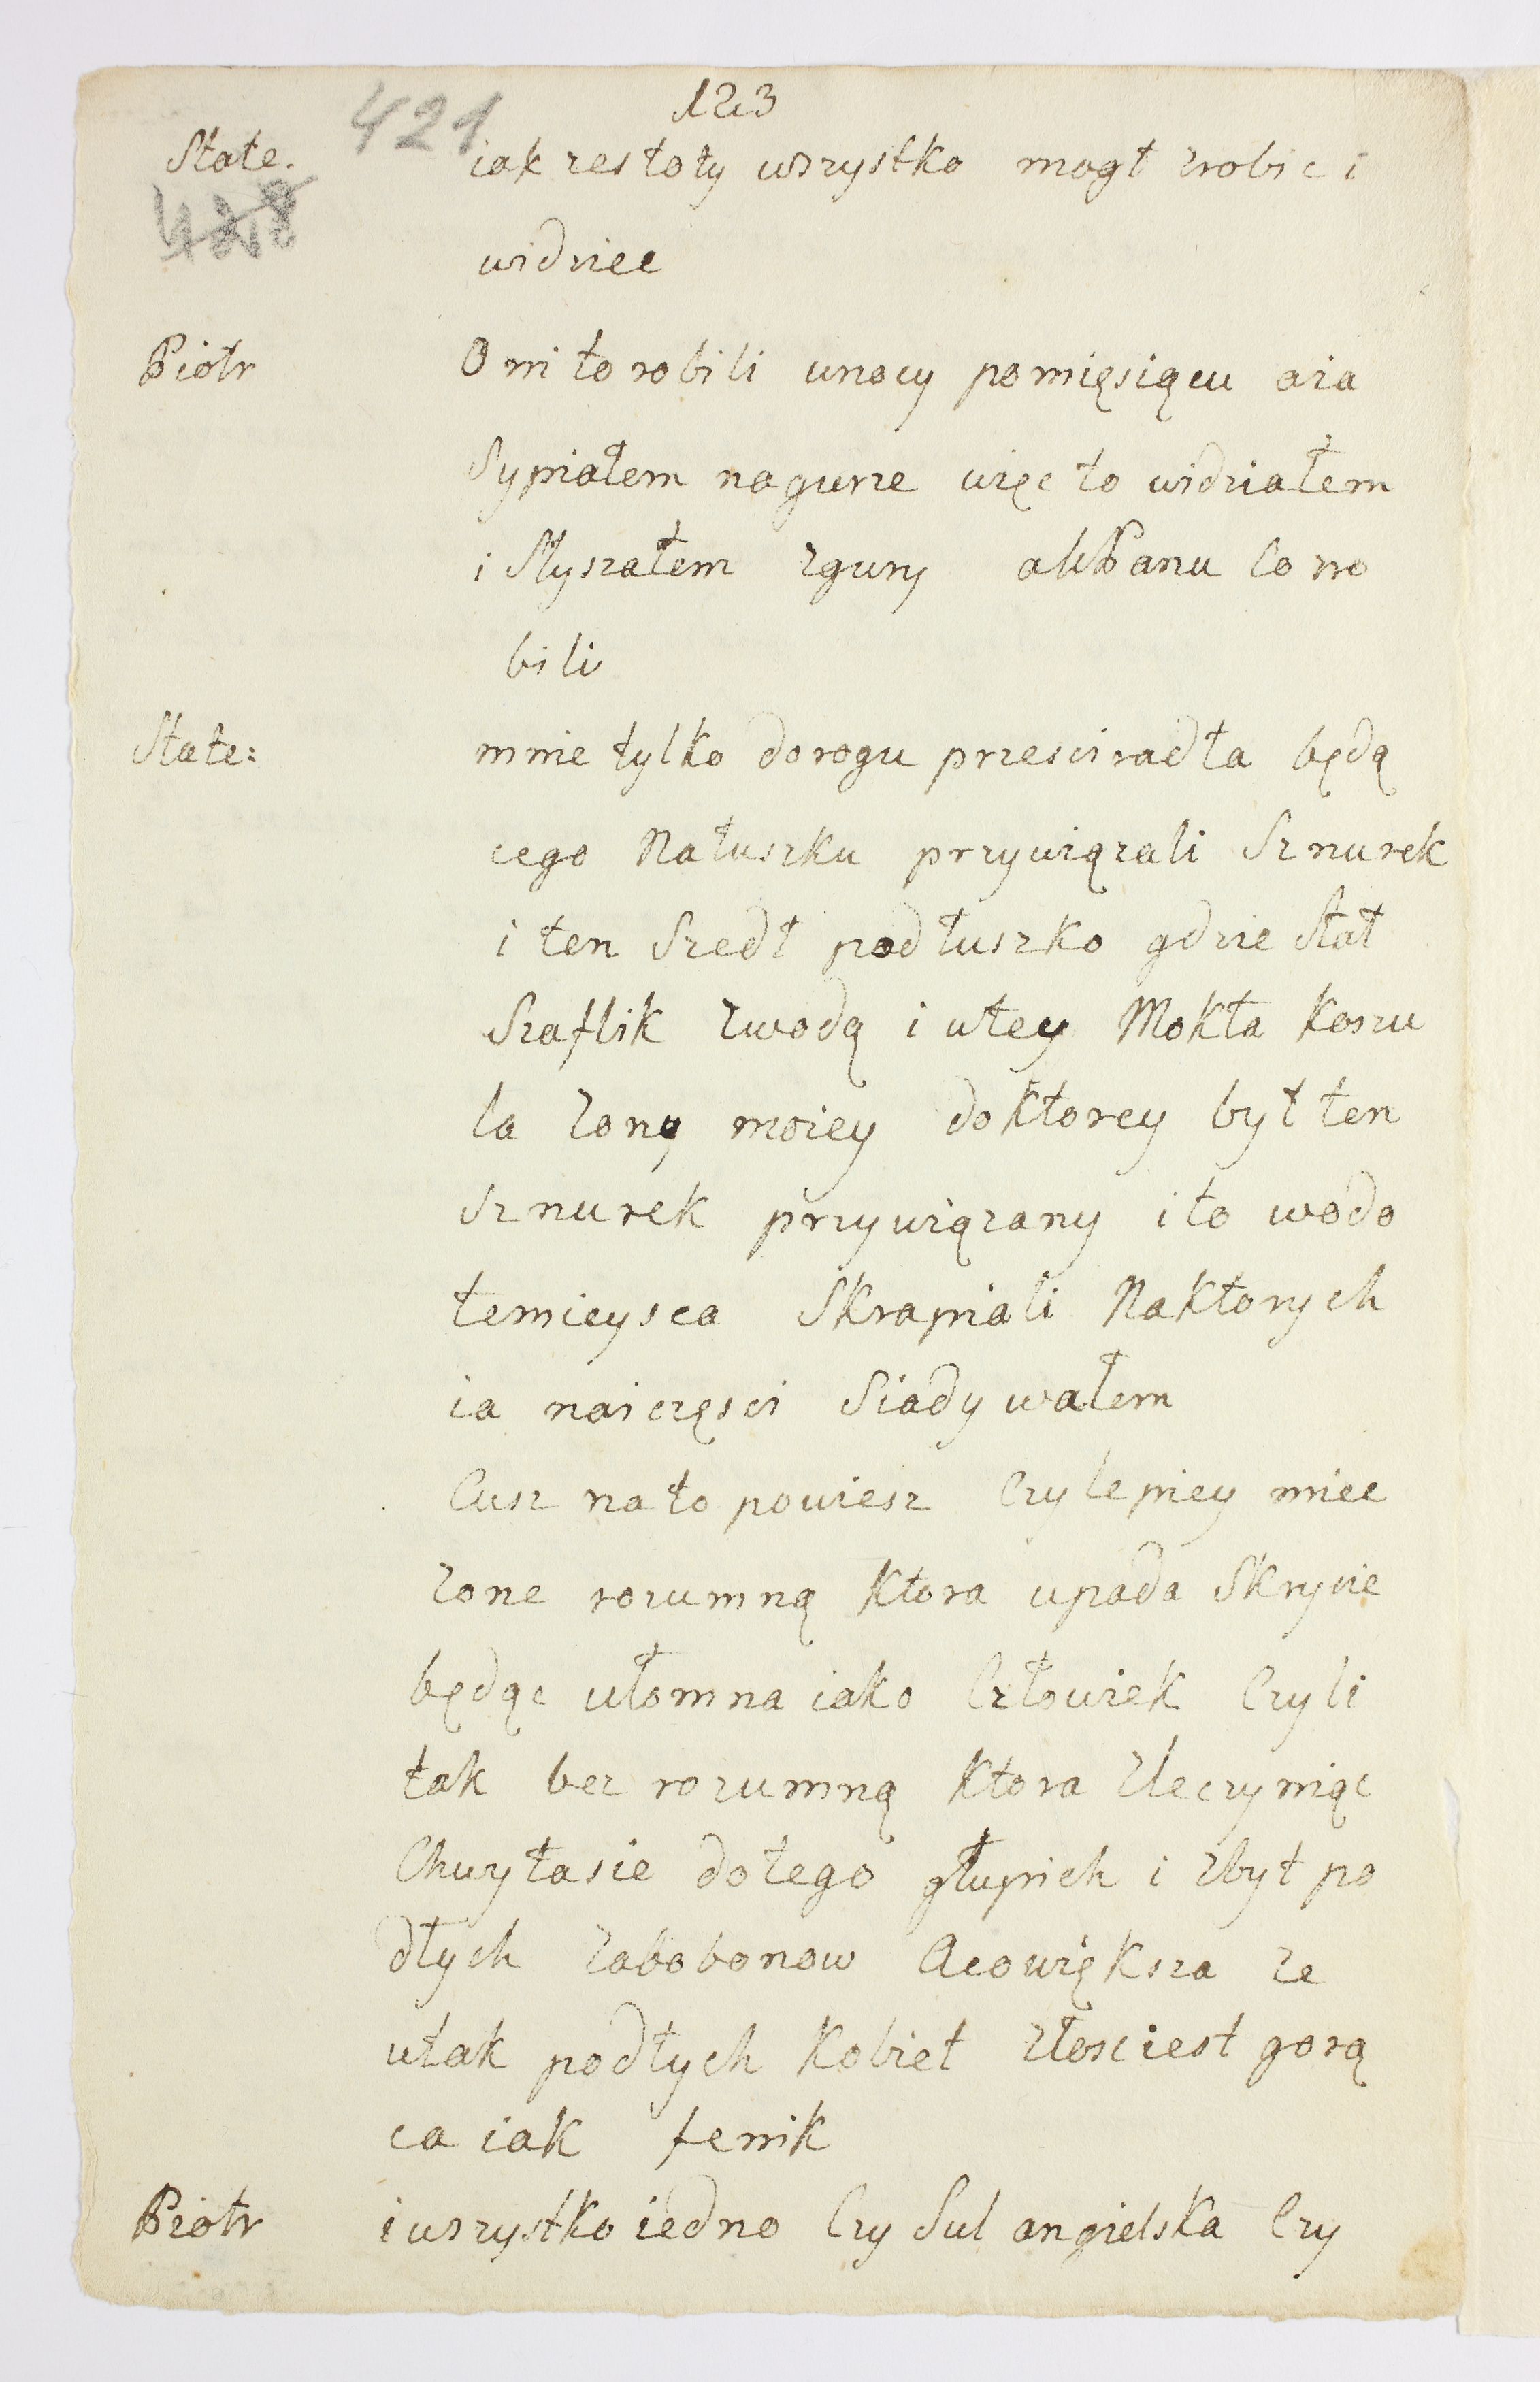 123
421
State. iak zestoły wszystko mogł zrobic i
428
widziec
Piotr Oni to robili wnocy pomięsiącu aia
Sypiałem nagurze więc to widziałem
i Słyszałem zgury aliPanu Co zro
bili
State: mnie tylko dorogu przesciradła będą
cego Nałuszku przywiązali Sznurek
i ten Szedł podłuszko gdzie Stał
Szaflik zwodą i wtey Mokła koszu
la zony moiey doktorey był ten
Sznurek przywiązany i to wodo
temieysca Skrapiali Naktorych
ia naiczęsci Siadywałem
Cusz nato powiesz Czylepiey miec
zone rozumną Ktora upada Skrycie
będąc ułomna iako Człowiek Czyli
tak bez rozumną Ktora zleczyniąc
Chwytasie dotego głupich i zbyt po
dłych zabobonow Acowiększa ze
wtak podłych Kobiet złosciest gorą
ca iak fenik
Piotr i wszystko iedno Czy Sul angielska Czy